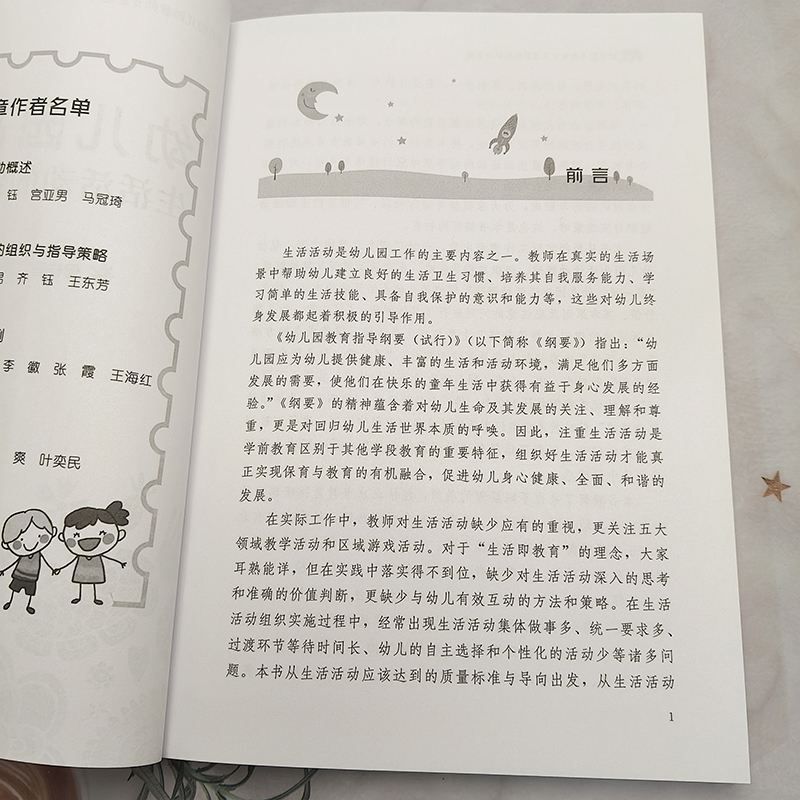 章作者名单
动概述
钰 宫亚男 马冠琦
的组织与指导策略
男 齐 钰 王东芳
例
李 徽 张 霞 王海红
爽 叶奕民
前言
生活活动是幼儿园工作的主要内容之一。教师在真实的生活场
景中帮助幼儿建立良好的生活卫生习惯、培养其自我服务能力、学
习简单的生活技能、具备自我保护的意识和能力等，这些对幼儿终
身发展都起着积极的引导作用。
《幼儿园教育指导纲要（试行）》（以下简称《纲要》）指出：“幼
儿园应为幼儿提供健康、丰富的生活和活动环境，满足他们多方面
发展的需要，使他们在快乐的童年生活中获得有益于身心发展的经
验。”《纲要》的精神蕴含着对幼儿生命及其发展的关注、理解和尊
重，更是对回归幼儿生活世界本质的呼唤。因此，注重生活活动是
学前教育区别于其他学段教育的重要特征，组织好生活活动才能真
正实现保育与教育的有机融合，促进幼儿身心健康、全面、和谐的
发展。
在实际工作中，教师对生活活动缺少应有的重视，更关注五大
领域教学活动和区域游戏活动。对于“生活即教育”的理念，大家
耳熟能详，但在实践中落实得不到位，缺少对生活活动深入的思考
和准确的价值判断，更缺少与幼儿有效互动的方法和策略。在生活
活动组织实施过程中，经常出现生活活动集体做事多、统一要求多、
过渡环节等待时间长、幼儿的自主选择和个性化的活动少等诸多问
题。本书从生活活动应该达到的质量标准与导向出发，从生活活动
1